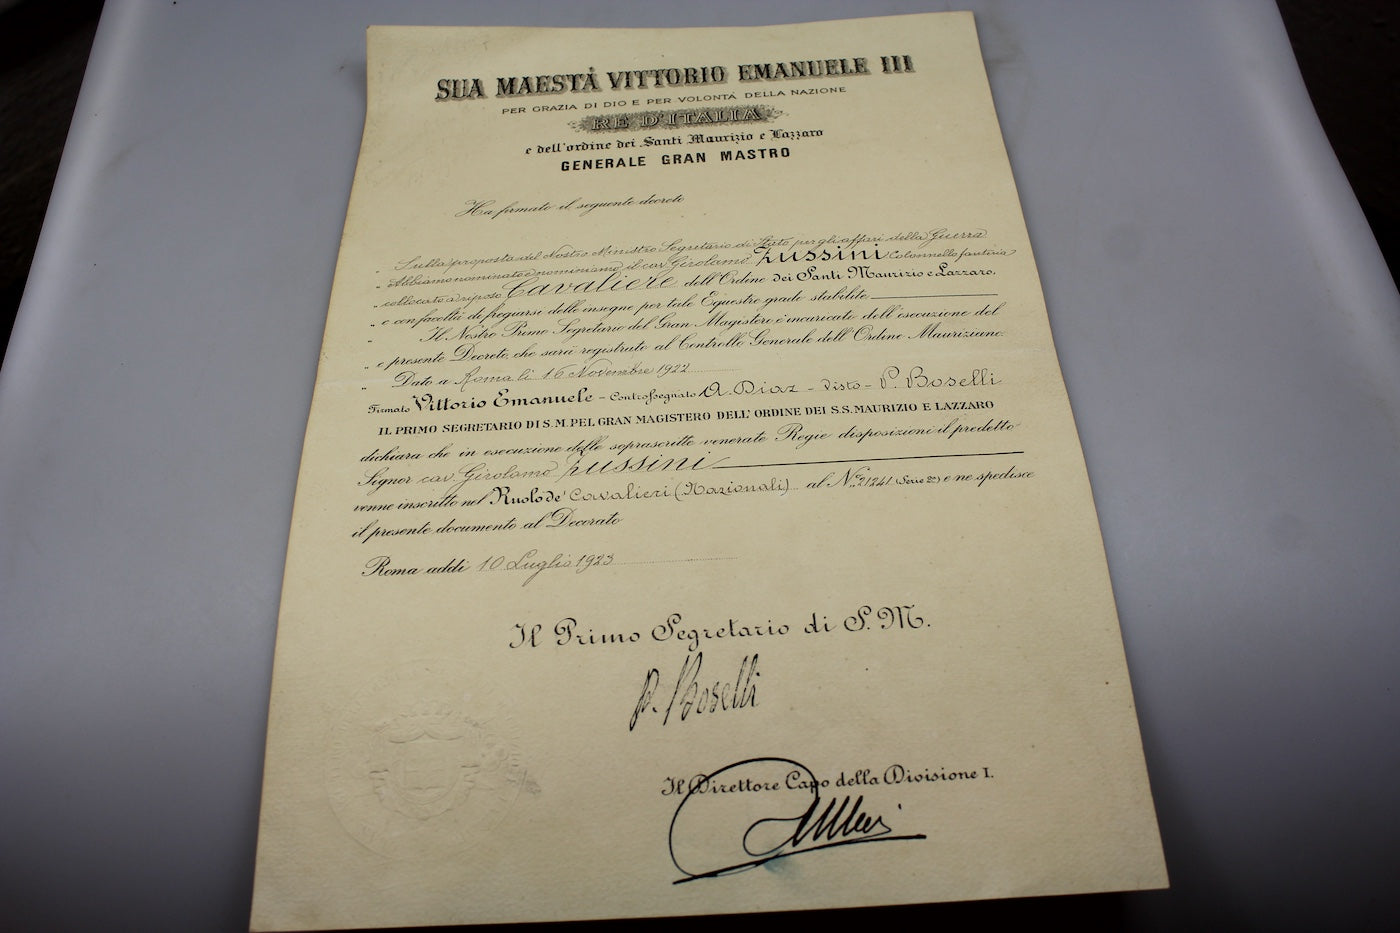 SUA MAESTÀ VITTORIO EMANUELE III
PER GRAZIA DI DIO E PER VOLONTÀ DELLA NAZIONE
RE D'ITALIA
e dell'ordine dei Santi Maurizio e Lazzaro
GENERALE GRAN MASTRO
Ha firmato il seguente decreto
„ Sulla proposta del Nostro Ministro Segretario di Stato per gli affari della Guerra
„ Abbiamo nominato e nominiamo il cav. Girolamo Zussini Colonnello fanteria
„ collocato a riposo Cavaliere dell'Ordine dei Santi Maurizio e Lazzaro,
„ e con facoltà di fregiarsi delle insegne per tale Equestre grado stabilite
„ Il Nostro Primo Segretario del Gran Magistero è incaricato dell'esecuzione del
„ presente Decreto, che sarà registrato al Controllo Generale dell'Ordine Mauriziano.
„ Dato a Roma li 16 Novembre 1922
Firmato Vittorio Emanuele - Controssegnato A. Diaz - Visto - P. Boselli
IL PRIMO SEGRETARIO DI S. M. PEL GRAN MAGISTERO DELL'ORDINE DEI S.S. MAURIZIO E LAZZARO
dichiara che in esecuzione delle soprascritte venerate Regie disposizioni il predetto
Signor cav. Girolamo Zussini
venne inscritto nel Ruolo de' Cavalieri (Nazionali) al N.º 21241 (Serie 2ª) e ne spedisce
il presente documento al Decorato
Roma addì 10 Luglio 1923
Il Primo Segretario di S. M.
P. Boselli
Il Direttore Capo della Divisione I.